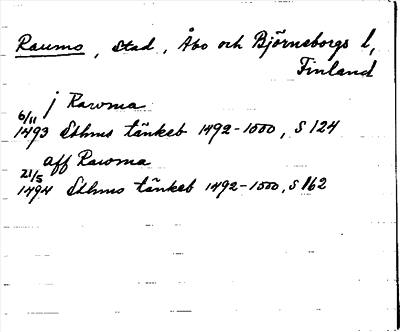 Raumo, stad, Åbo och Björneborgs l,
Finland
j Rawma
6/11
1493 Sthms tänkeb 1492-1500, S 124
aff Rawma
21/5
1494 Sthms tänkeb 1492-1500, S 162